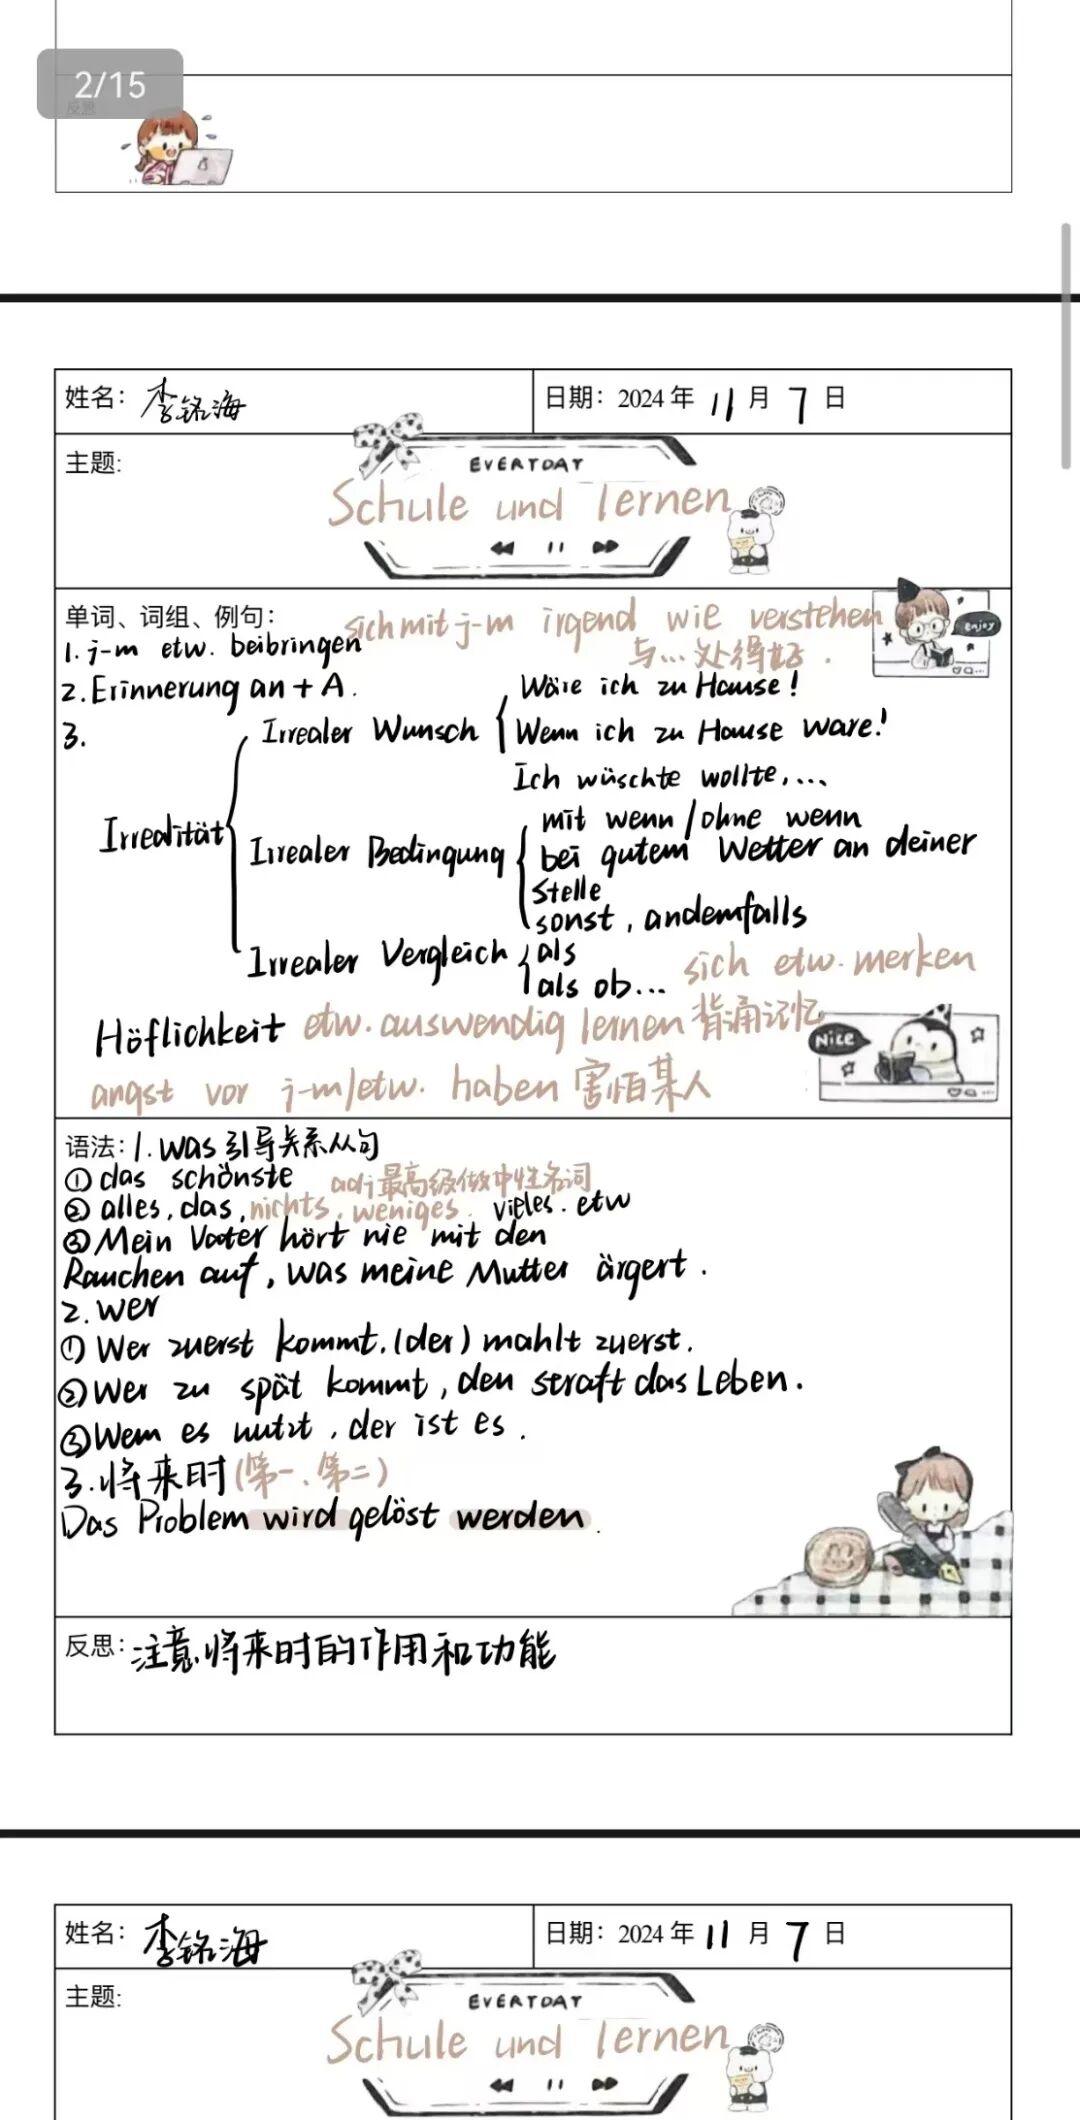 2/15
反思
姓名：李铭海
日期：2024年 11月 7日
主题:
EVERTDAT
Schule und lernen
单词、词组、例句：
sich mit j-m irgend wie verstehen
enjoy
1. j-m etw. beibringen
与…处得好.
2. Erinnerung an + A.
Wäre ich zu Hause!
3.
Irrealer Wunsch
Wenn ich zu Hause ware!
Ich wüschte wollte,...
Irrealität
mit wenn / ohne wenn
Irrealer Bedingung
bei gutem Wetter an deiner
Stelle
sonst, andemfalls
Irrealer Vergleich
als
als ob...
sich etw. merken
Höflichkeit
etw. auswendig lernen 背诵记忆
Nice
angst vor j-m/etw. haben 害怕某人
语法：1. was 引导关系从句
① das schönste
adj最高级做中性名词
② alles, das, nichts, weniges. vieles. etw
③ Mein Vater hört nie mit den
Rauchen auf, was meine Mutter ärgert.
2. wer
① Wer zuerst kommt. (der) mahlt zuerst.
② Wer zu spät kommt, den straft das Leben.
③ Wem es nutzt, der ist es.
3. 将来时(第一、第二)
Das Problem wird gelöst werden.
反思：注意将来时的作用和功能
姓名：李铭海
日期：2024年 11月 7日
主题:
EVERTDAT
Schule und lernen